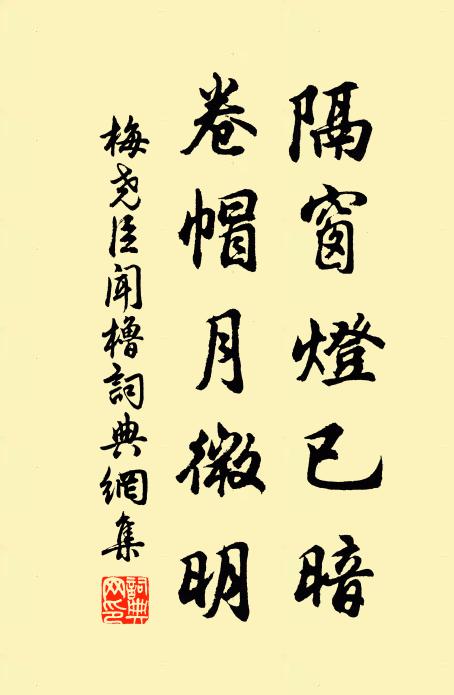 隔窗燈已暗
卷帽月微明
梅堯臣聞櫓詞典網集
詞典網印